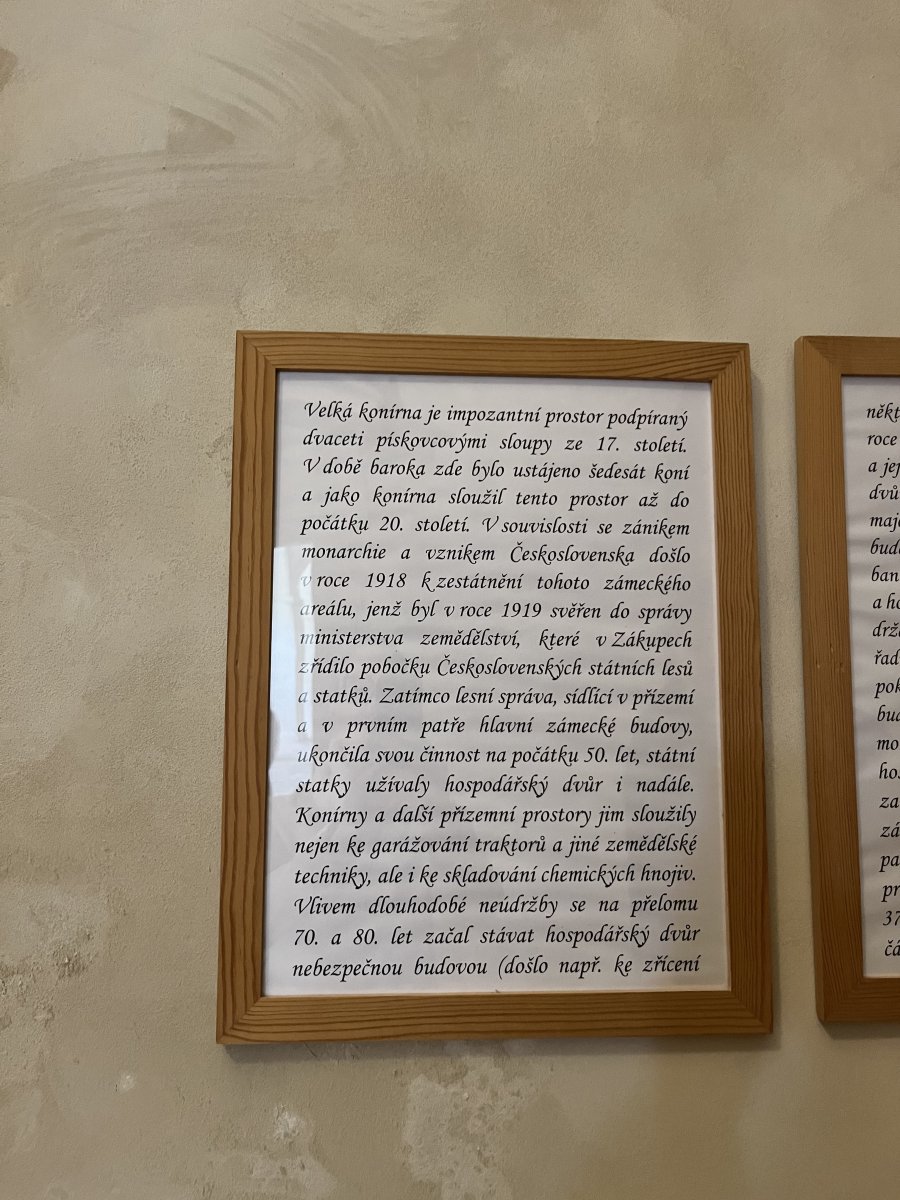 Velká konírna je impozantní prostor podpíraný
dvaceti pískovcovými sloupy ze 17. století.
V době baroka zde bylo ustájeno šedesát koní
a jako konírna sloužil tento prostor až do
počátku 20. století. V souvislosti se zánikem
monarchie a vznikem Československa došlo
v roce 1918 k zestátnění tohoto zámeckého
areálu, jenž byl v roce 1919 svěřen do správy
ministerstva zemědělství, které v Zákupech
zřídilo pobočku Československých státních lesů
a statků. Zatímco lesní správa, sídlící v přízemí
a v prvním patře hlavní zámecké budovy,
ukončila svou činnost na počátku 50. let, státní
statky užívaly hospodářský dvůr i nadále.
Konírny a další přízemní prostory jim sloužily
nejen ke garážování traktorů a jiné zemědělské
techniky, ale i ke skladování chemických hnojiv.
Vlivem dlouhodobé neúdržby se na přelomu
70. a 80. let začal stávat hospodářský dvůr
nebezpečnou budovou (došlo např. ke zřícení
roce
a
37